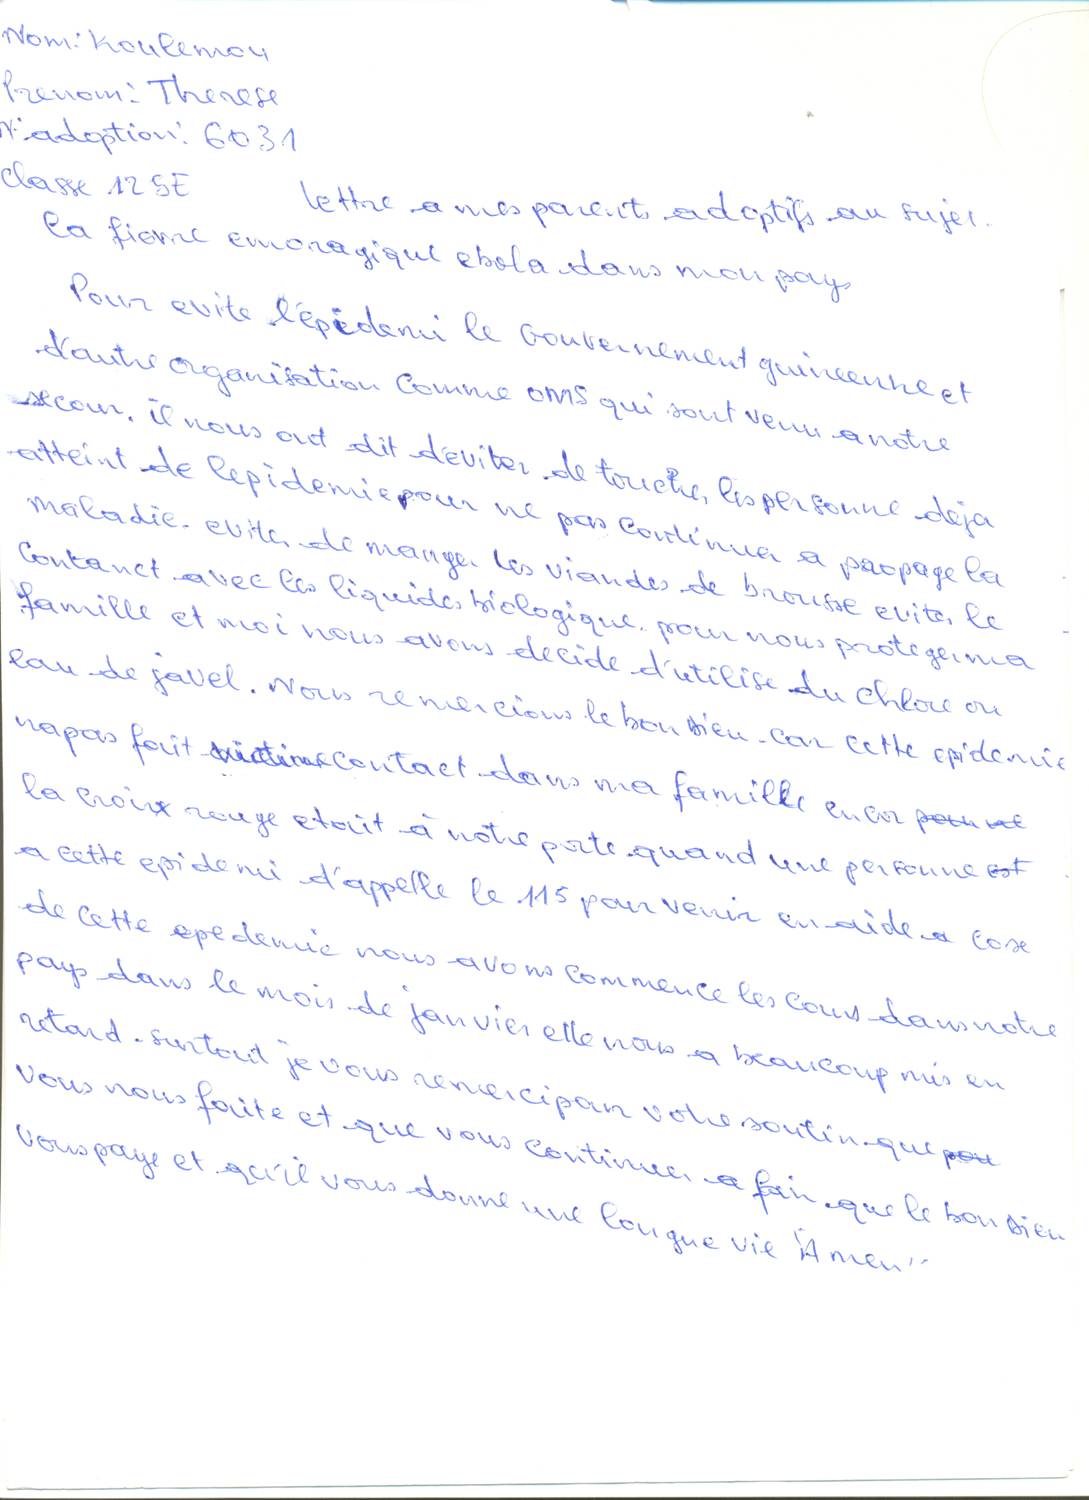 Nom: Koulemou
Prenom: Therese
N°adoption: 6031
Classe 12 SE
lettre a mes parents adoptifs au sujet.
la fievre emoragique ebola dans mon pays
Pour evite l'épidemi le Gouvernement guineenne et
d'autre organisation comme OMS qui sont venu a notre
secour. il nous ont dit d'eviter de touche, les personne deja
atteint de lepidemie pour ne pas continuer a propage la
maladie. evite, de manger les viandes de brousse evite, le
Contanct avec les liquides biologique. pour nous proteger ma
famille et moi nous avons decide d'utilise du chlore ou
eau de javel. Nous remercions le bon Dieu car cette epidemie
napas fait contact dans ma famille encor
la croix rouge etait à notre porte quand une personne
a cette epidemi d'appelle le 115 pour venir en aide a cose
de cette epedemie nous avons commence les cours dans notre
pays dans le mois de janvier elle nous a beaucoup mis en
retard. surtout je vous remerci par votre soutin que
vous nous faite et que vous continuer a fair que le bon Dieu
vous paye et qu'il vous donne une longue vie "Amen"